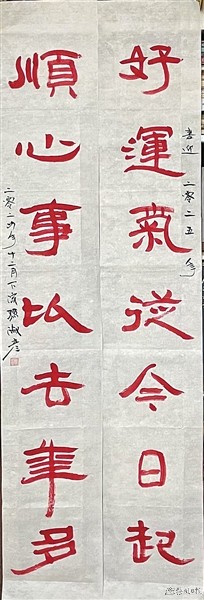 喜迎 二零二五年
好運氣從今日起
順心事比去年多
二零二四年十二月下浣孫淑彥